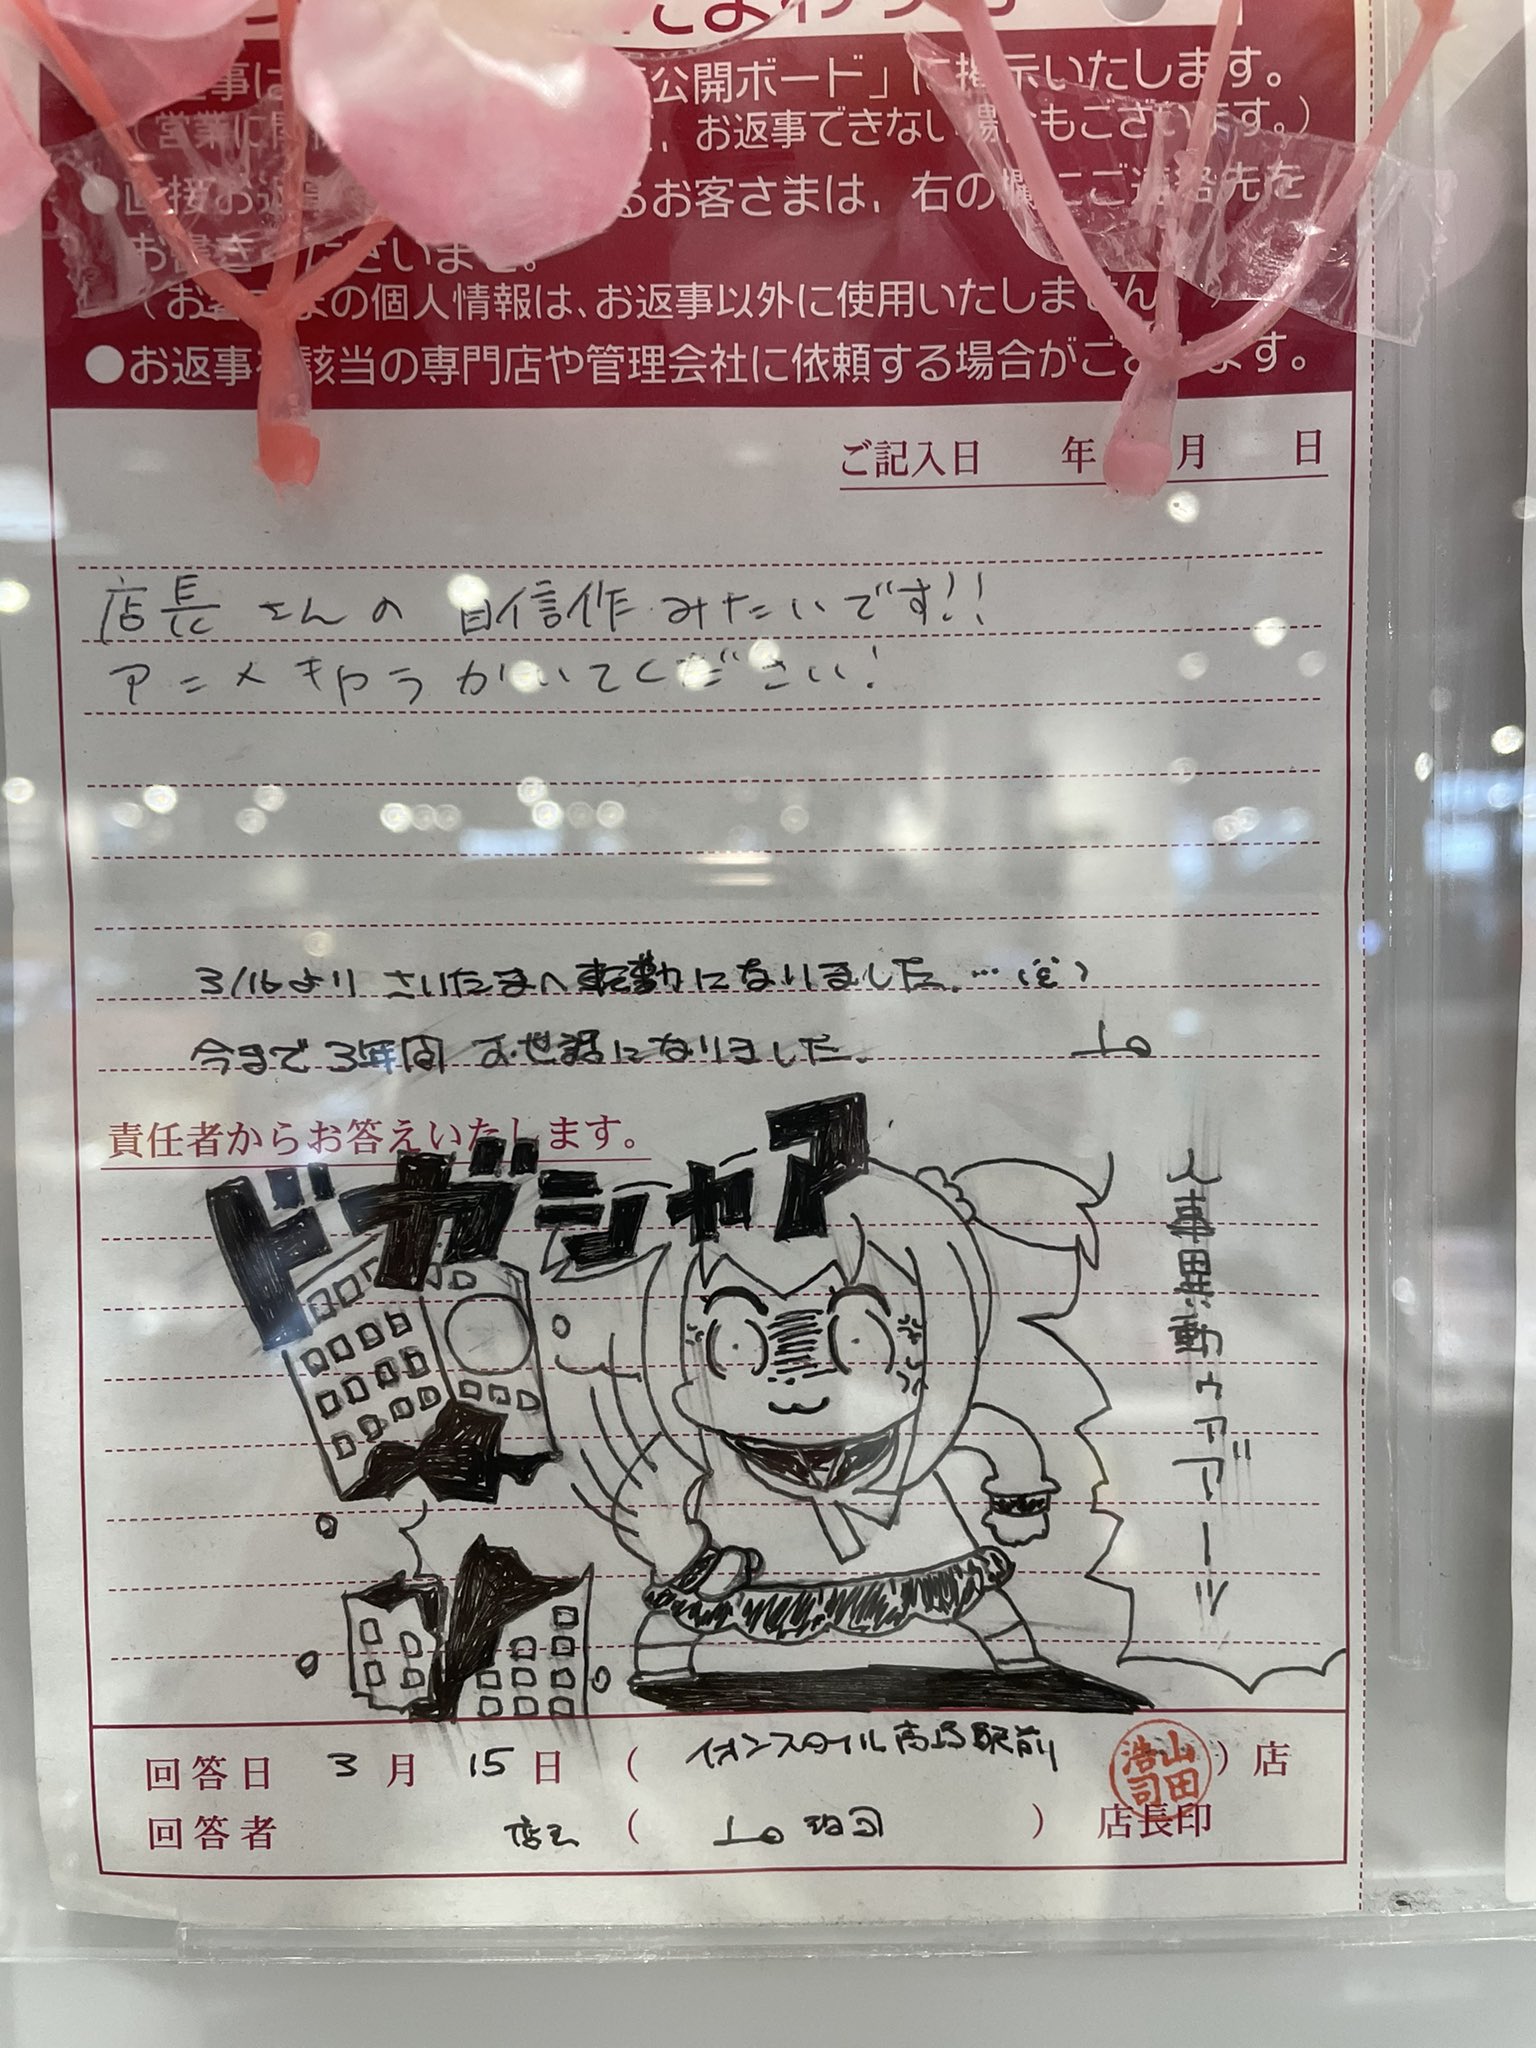 公開ボード」に掲示いたします。
お返事できない場合もございます。）
るお客さまは，右の欄にご連絡先を
お書きくださいませ。
（お客さまの個人情報は、お返事以外に使用いたしません
●お返事を該当の専門店や管理会社に依頼する場合がございます。
ご記入日 年 月 日
店長さんの自信作みたいです!!
アニメキャラかいてください!
3/16より さいたまへ転勤になりました…
今まで3年間 お世話になりました。
責任者からお答えいたします。
ドガシャア
人事異動ゥアアーーッ
回答日 3月 15日 （ イオンスタイル高崎駅前 ） 店
山田浩司
回答者 店長 （ 浩司 ） 店長印